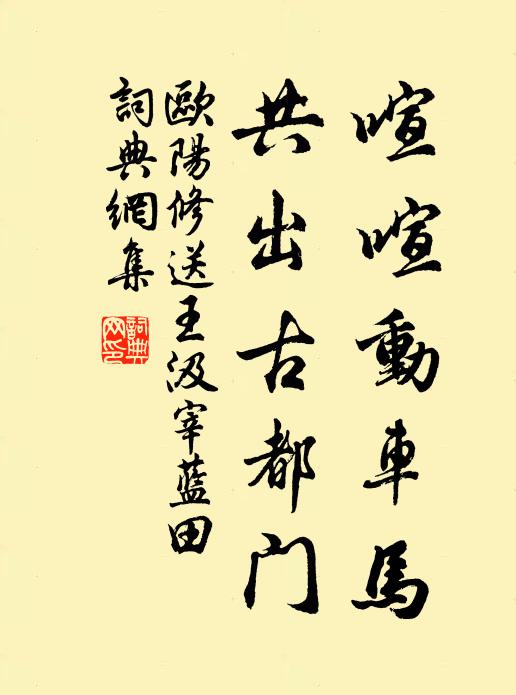 喧喧動車馬
共出古都门
歐陽修送王汲宰藍田
詞典網集
詞典
网印